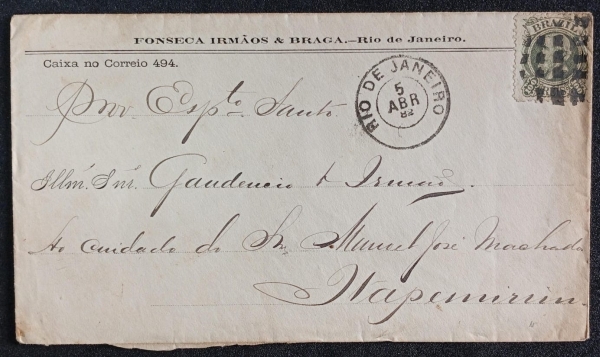 FONSECA IRMÃOS & BRAGA.—Rio de Janeiro.
Caixa no Correio 494.
BRAZIL
RIO DE JANEIRO
5
ABR
82
Prov. Espto. Santo
Illmº. Snrs. Gaudencio & Irmão.
Ao cuidado do Sr. Manuel José Machado
Itapemirim